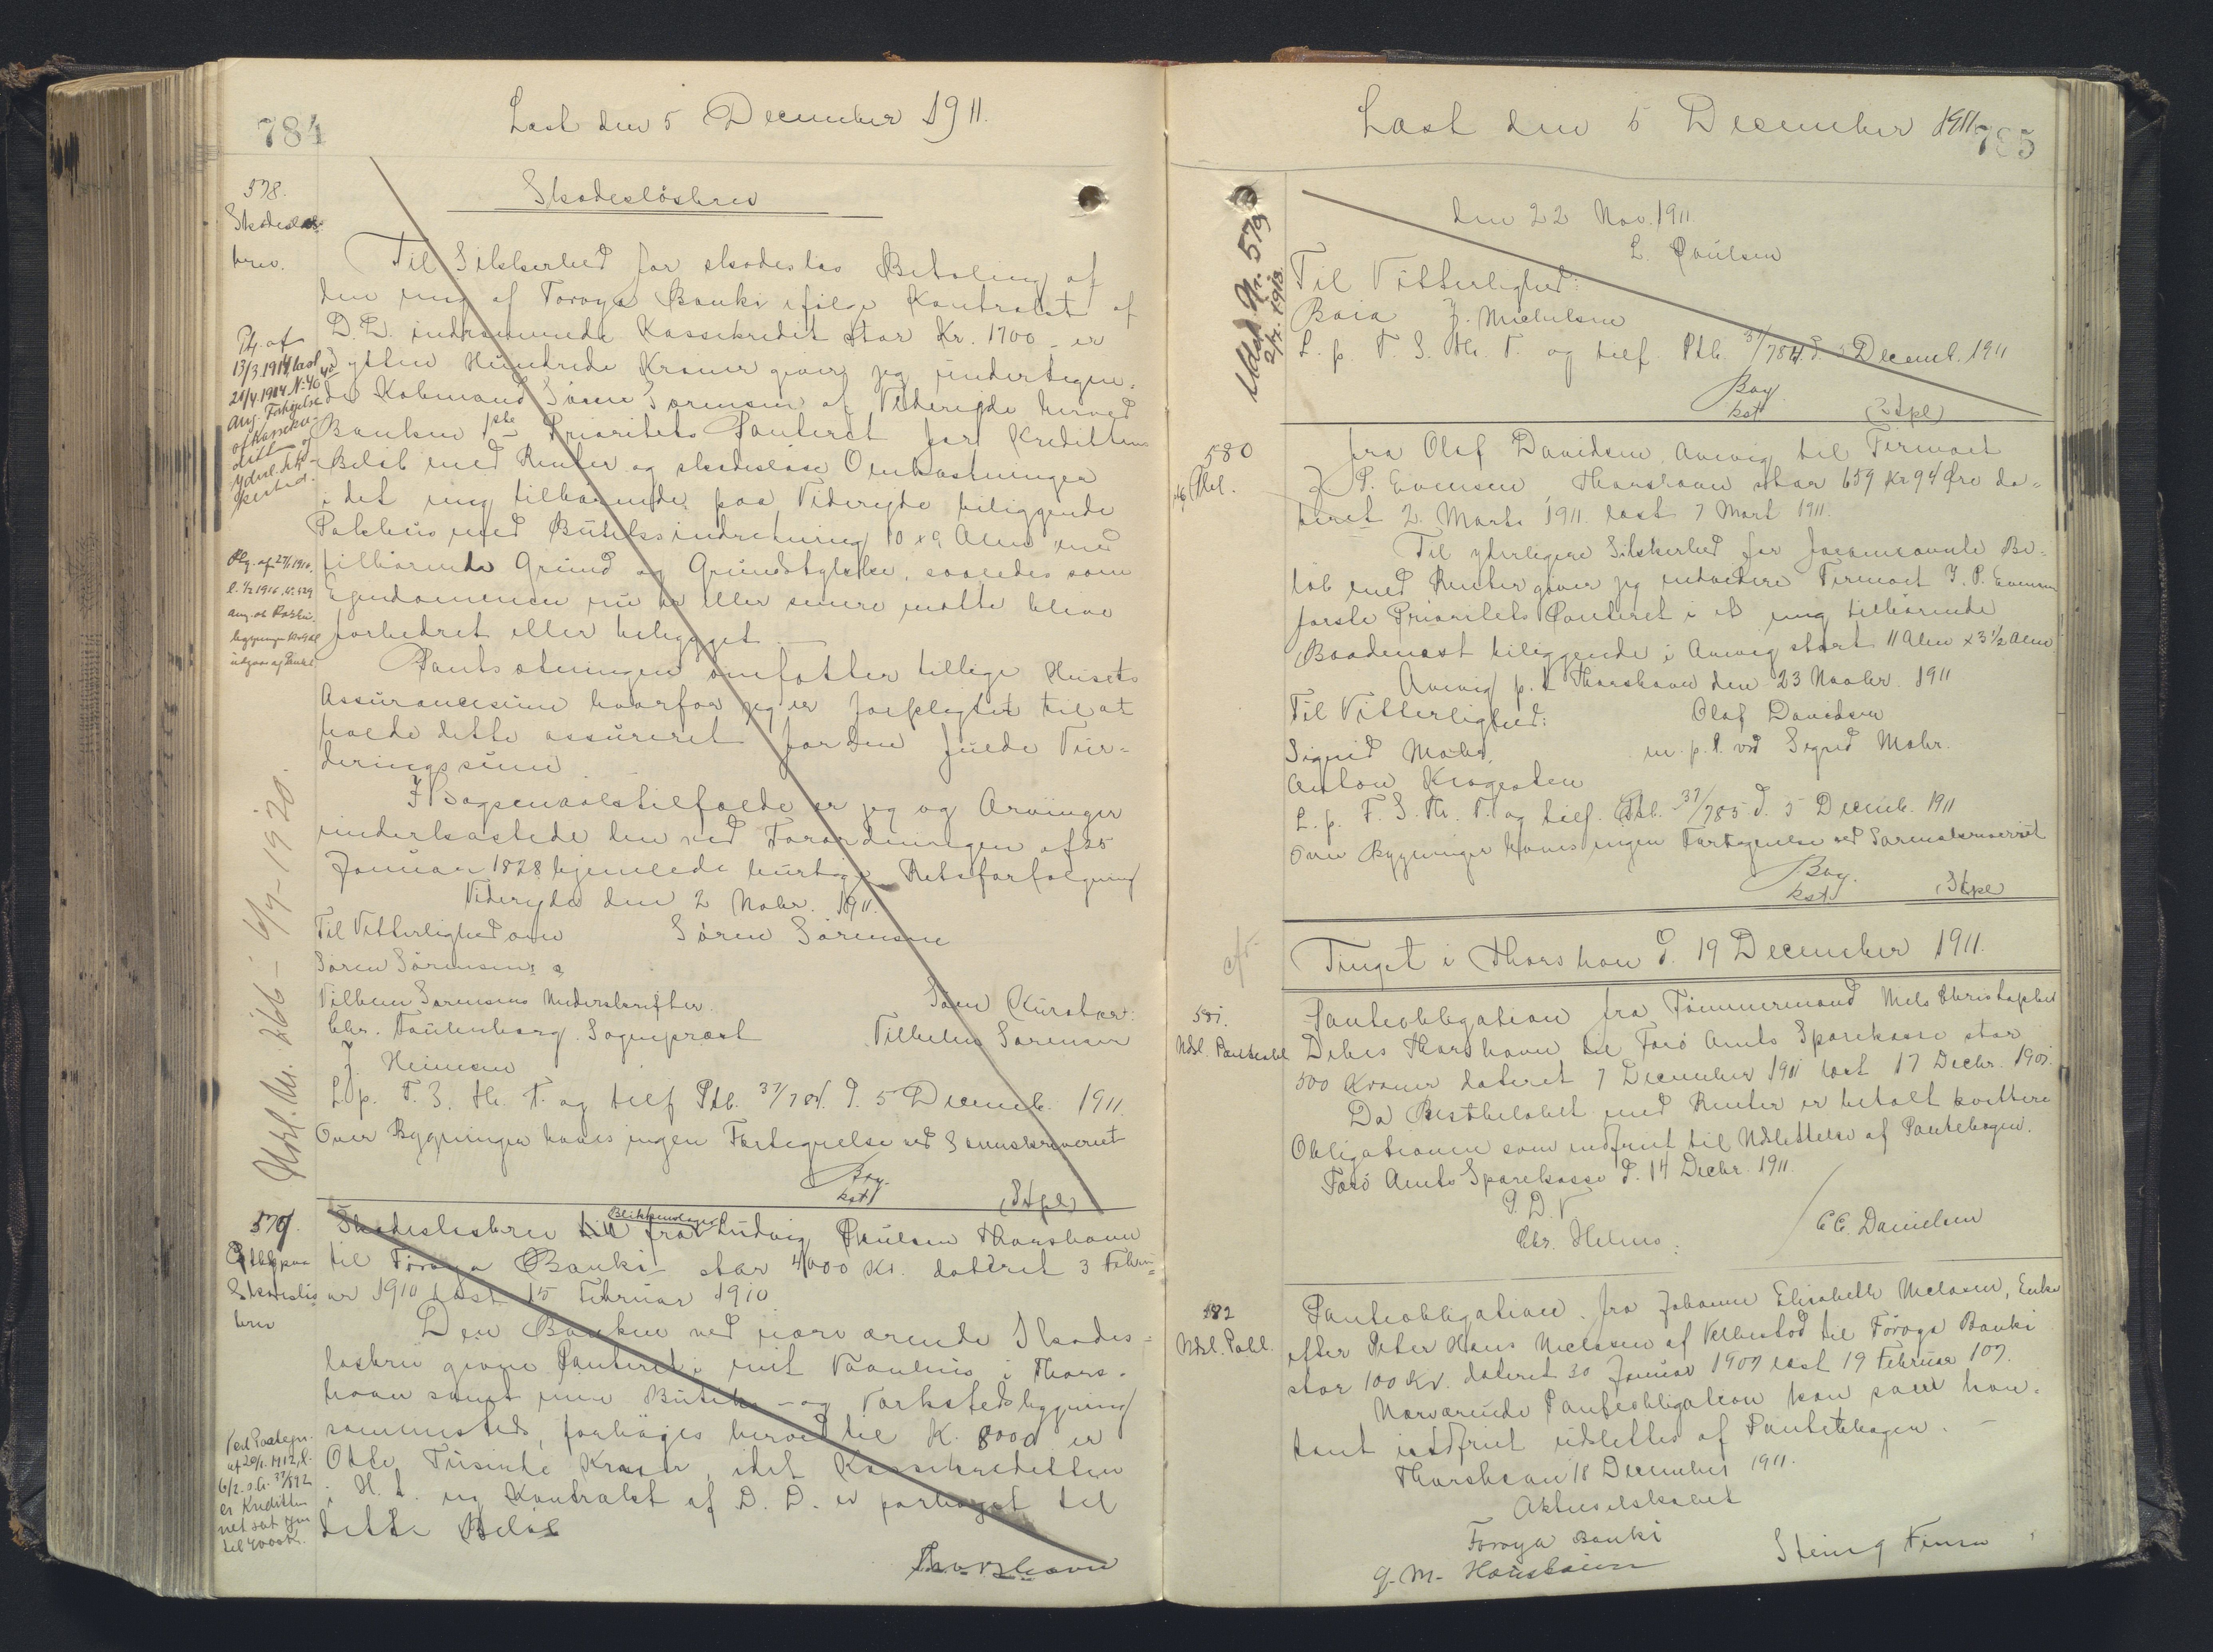 784
Læst den 5 December 1911.
578.
Skadesløs-
brev.
Skadesløsbrev
Til Sikkerhed for skadesløs Betaling af
den mig af Føroya Banki ifølge Kontrakt af
D. D. indrømmede Kassekredit stor Kr. 1700 - er
Sytten Hundrede Kroner giver jeg undertegne-
de Købmand Søren Sørensen af Videreide herved
Banken 1ste Prioritets Panteret for Kredittens
Beløb med Renter og skadesløse Omkostninger
i det mig tilhørende paa Videreide beliggende
Pakhus med Butiksindretning 10 x 9 Alen med
tilhørende Grund og Grundstykke, saaledes som
Ejendommen nu er eller senere maatte blive
forbedret eller bebygget.
Pantsætningen omfatter tillige Husets
Assurancesum hvorfor jeg er forpligtet til at
holde dette assureret for den fulde Vur-
deringssum
I Søgsmaalstilfælde er jeg og Arvinger
underkastede den ved Forordningen af 25
Januar 1828 hjemlede hurtige Retsforfølgning
Videreide den 2 Nobr. 1911.
Til Vitterlighed om
Søren Sørensen
Søren Sørensens &
Vilhelm Sørensens Underskrifter.
Som Kurator:
Chr. Fauerborg, Sognepræst
Vilhelm Sørensen
J. Heinesen
L. p. F. S. Th. T. og tilf Ptb. 37/784. d. 5 Decemb. 1911.
Over Bygningen haves ingen Fortegnelse ved Sorenskriveriet
Bay.
kst.
(Stpl)
Ptg. af
13/3.1914, læst
21/4.1914 N: 46
ang. Forhøjelse
af Kassekre-
dit og
yderl. Sik-
kerhed.
Ptg. af 27/1 1916,
l. 1/2 1916, N: 529
udgaar af Pantet
Udsl. Nr. 266 - 6/7 - 1920.
579.
Skadesløs
brev
Skadesløsbrev fra Blikkenslager Ludvig Poulsen Thorshavn
til Føroya Banki stor 4000 Kr. dateret 3 Febru-
ar 1910 læst 15 Februar 1910
Den Banken ved nærværende Skades-
løsbrev givne Panteret i mit Vaanhus i Thors-
havn samt min Butiks - og Værkstedsbygning
sammesteds, forhøjes herved til K. 8000 er
Otte Tusinde Kroner, idet Kassekreditten
i H. t. ny Kontrakt af D. D. er forhøjet til
dette Beløb
Thorshavn
Ved Paategn.
af 20/1. 1912, l.
6/2. s. A. 37/892
er Kreditten
nedsat igen
til 4000 Kr.
Læst den 5 December 1911
785
Udsl. Nr. 579
2/12. 1913.
den 22 Nov. 1911
L. Poulsen
Til Vitterlighed:
J. Michelsen
L. p. F. S. Th. T. og tilf Ptb. 37/784 d. 5 Decemb. 1911
Bay.
kst
(Stpl)
580
Obl.
fra Olaf Davidsen Arvevig til Firmaet
J. P. Evensen, Thorshavn stor 659 Kr 94 Øre da-
teret 2. Marts 1911. læst 7 Mart 1911.
Til yderligere Sikkerhed for foranævnte Be-
løb med Renter giver jeg endvidere Firmaet J. P. Evensen
første Prioritets Panteret i et mig tilhørende
Baadenøst beliggende i Arvevig stort 11 Alen x 3 1/2 Alen
Arvevig p. t. Thorshavn den 23 Novbr. 1911
Til Vitterlighed:
Olaf Davidsen
Sigrid Mohr,
m. p. P. ved Sigrid Mohr.
Anton Krogesten
L. p. F. S. Th. T. og tilf. Ptb. 37/785 d. 5 Decemb. 1911
Over Bygningen haves ingen Fortegnelse ved Sorenskriveriet
Bay.
kst
(Stpl)
Tinget i Thorshavn d. 19 December 1911.
581.
Udsl. Panteobl
Panteobligation fra Tømmermand Niels Christopher
Debes Thorshavn til Færø Amts Sparekasse stor
500 Kroner dateret 7 December 1901 læst 17 Decbr. 1901.
Da Restbeløbet med Renter er betalt kvittere
Obligationen som indfriet til Udslettelse af Pantebogen.
Færø Amts Sparekasse d. 14 Decbr. 1911.
P. D. V
Chr. Helms.
/ E. C. Danielsen
582
Udsl. Pobl.
Panteobligation fra Johanne Elisabeth Niclasen, Enke
efter Peter Hans Niclasen af Velbestad til Føroya Banki
stor 100 Kr. dateret 30 Januar 1907 læst 19 Februar 107.
Nærværende Panteobligation kan som kon-
tant indfriet udslettes af Pantebogen.
Thorshavn 18 December 1911.
Aktieselskabet
Føroya Banki